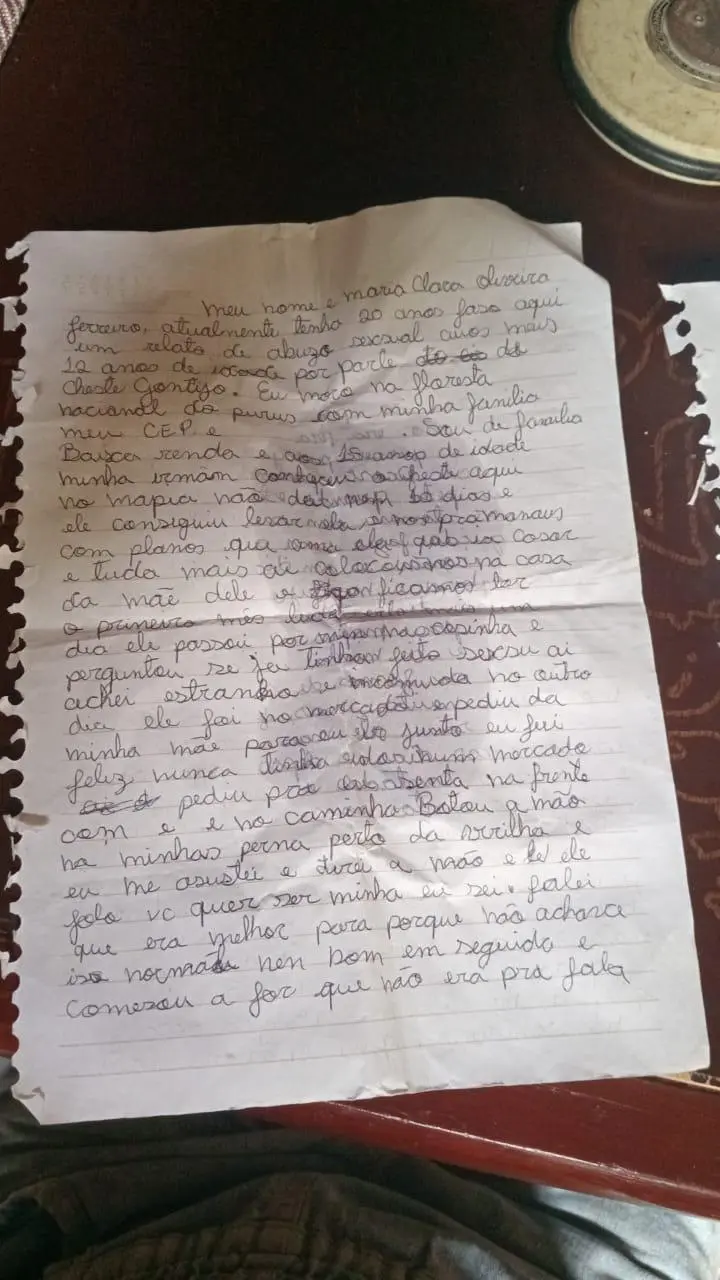 meu nome e maria Clara Oliveira
ferreiro, atualmente tenho 20 anos faso aqui
um relato de abuzo sexsual aos meus
12 anos de idade por parte de
Cheste Gontijo. Eu moro na floresta
nacional do purus com minha familia
meu C.E.P. e . Sou de familia
Baixca renda e aos 15 anos de idade
minha irmãn conheceu o Cheste aqui
no mapia não deu nem dias e
ele consiguiu levar nela e nos pra manaus
com planos que ia casar
e tuda mais ai colocou nos na casa
da mãe dele e ficamos lar
o primeiro mês tuda um
dia ele passou por mim na cosinha e
perguntou se ja tinha feito sexsu ai
achei estranho no outro
dia ele foi no mercado e pediu da
minha mãe para eu ir junto eu fui
feliz nunca tinha num mercado
pediu pra senta na frente
com e e no caminho Botou a mão
na minhas perna perto da virilha e
eu me asustei e tirei a mão e ele
falo vc quer ser minha eu sei. falei
que era melhor para porque não achava
iso normal nen bom em seguida e
Comesou a for que não era pra fala